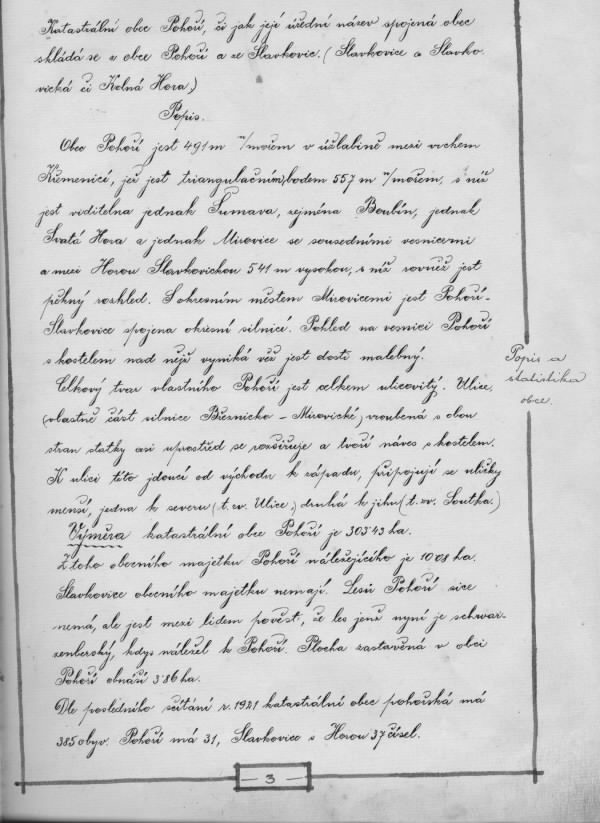 Katastrální obec Pohoří, či jak její úřední název spojená obec
skládá se z obce Pohoří a ze Slavkovic. (Slavkovice a Slavko
vická či Kolná Hora.)
Popis.
Obec Pohoří jest 491 m n/mořem v úžlabině mezi vrchem
Křemenicí, jež jest triangulačním bodem 557 m n/mořem, s níž
jest viditelna jednak Šumava, zejména Boubín, jednak
Svatá Hora a jednak Mirovice se sousedními vesnicemi
a mezi Horou Slavkovickou 541 m vysokou, s níž rovněž jest
pěkný rozhled. S okresním městem Mirovicemi jest Pohoří-
Slavkovice spojena okresní silnicí. Pohled na vesnici Pohoří
s kostelem nad nějž vyniká věž jest dosti malebný.
Celkový tvar vlastního Pohoří jest celkem ulicovitý. Ulice,
(vlastně část silnice Březnicko - Mirovické) vroubená s obou
stran statky asi uprostřed se rozšiřuje a tvoří náves s kostelem.
K ulici této jdoucí od východu k západu, připojují se uličky
menší, jedna k severu (t. zv. Ulice,) druhá k jihu (t. zv. Soutka.)
Výměra katastrální obce Pohoří je 303·43 ha.
Z toho obecního majetku Pohoří náležejícího je 10·08 ha.
Slavkovice obecního majetku nemají. Lesů Pohoří sice
nemá, ale jest mezi lidem pověst, že les jenž nyní je schwar-
zenberský, kdys náležel k Pohoří. Plocha zastavěná v obci
Pohoří obnáší 3·86 ha.
Dle posledního sčítání r. 1921 katastrální obec pohořská má
385 obyv. Pohoří má 31, Slavkovice s Horou 37 čísel.
Popis a
statistika
obce.
3